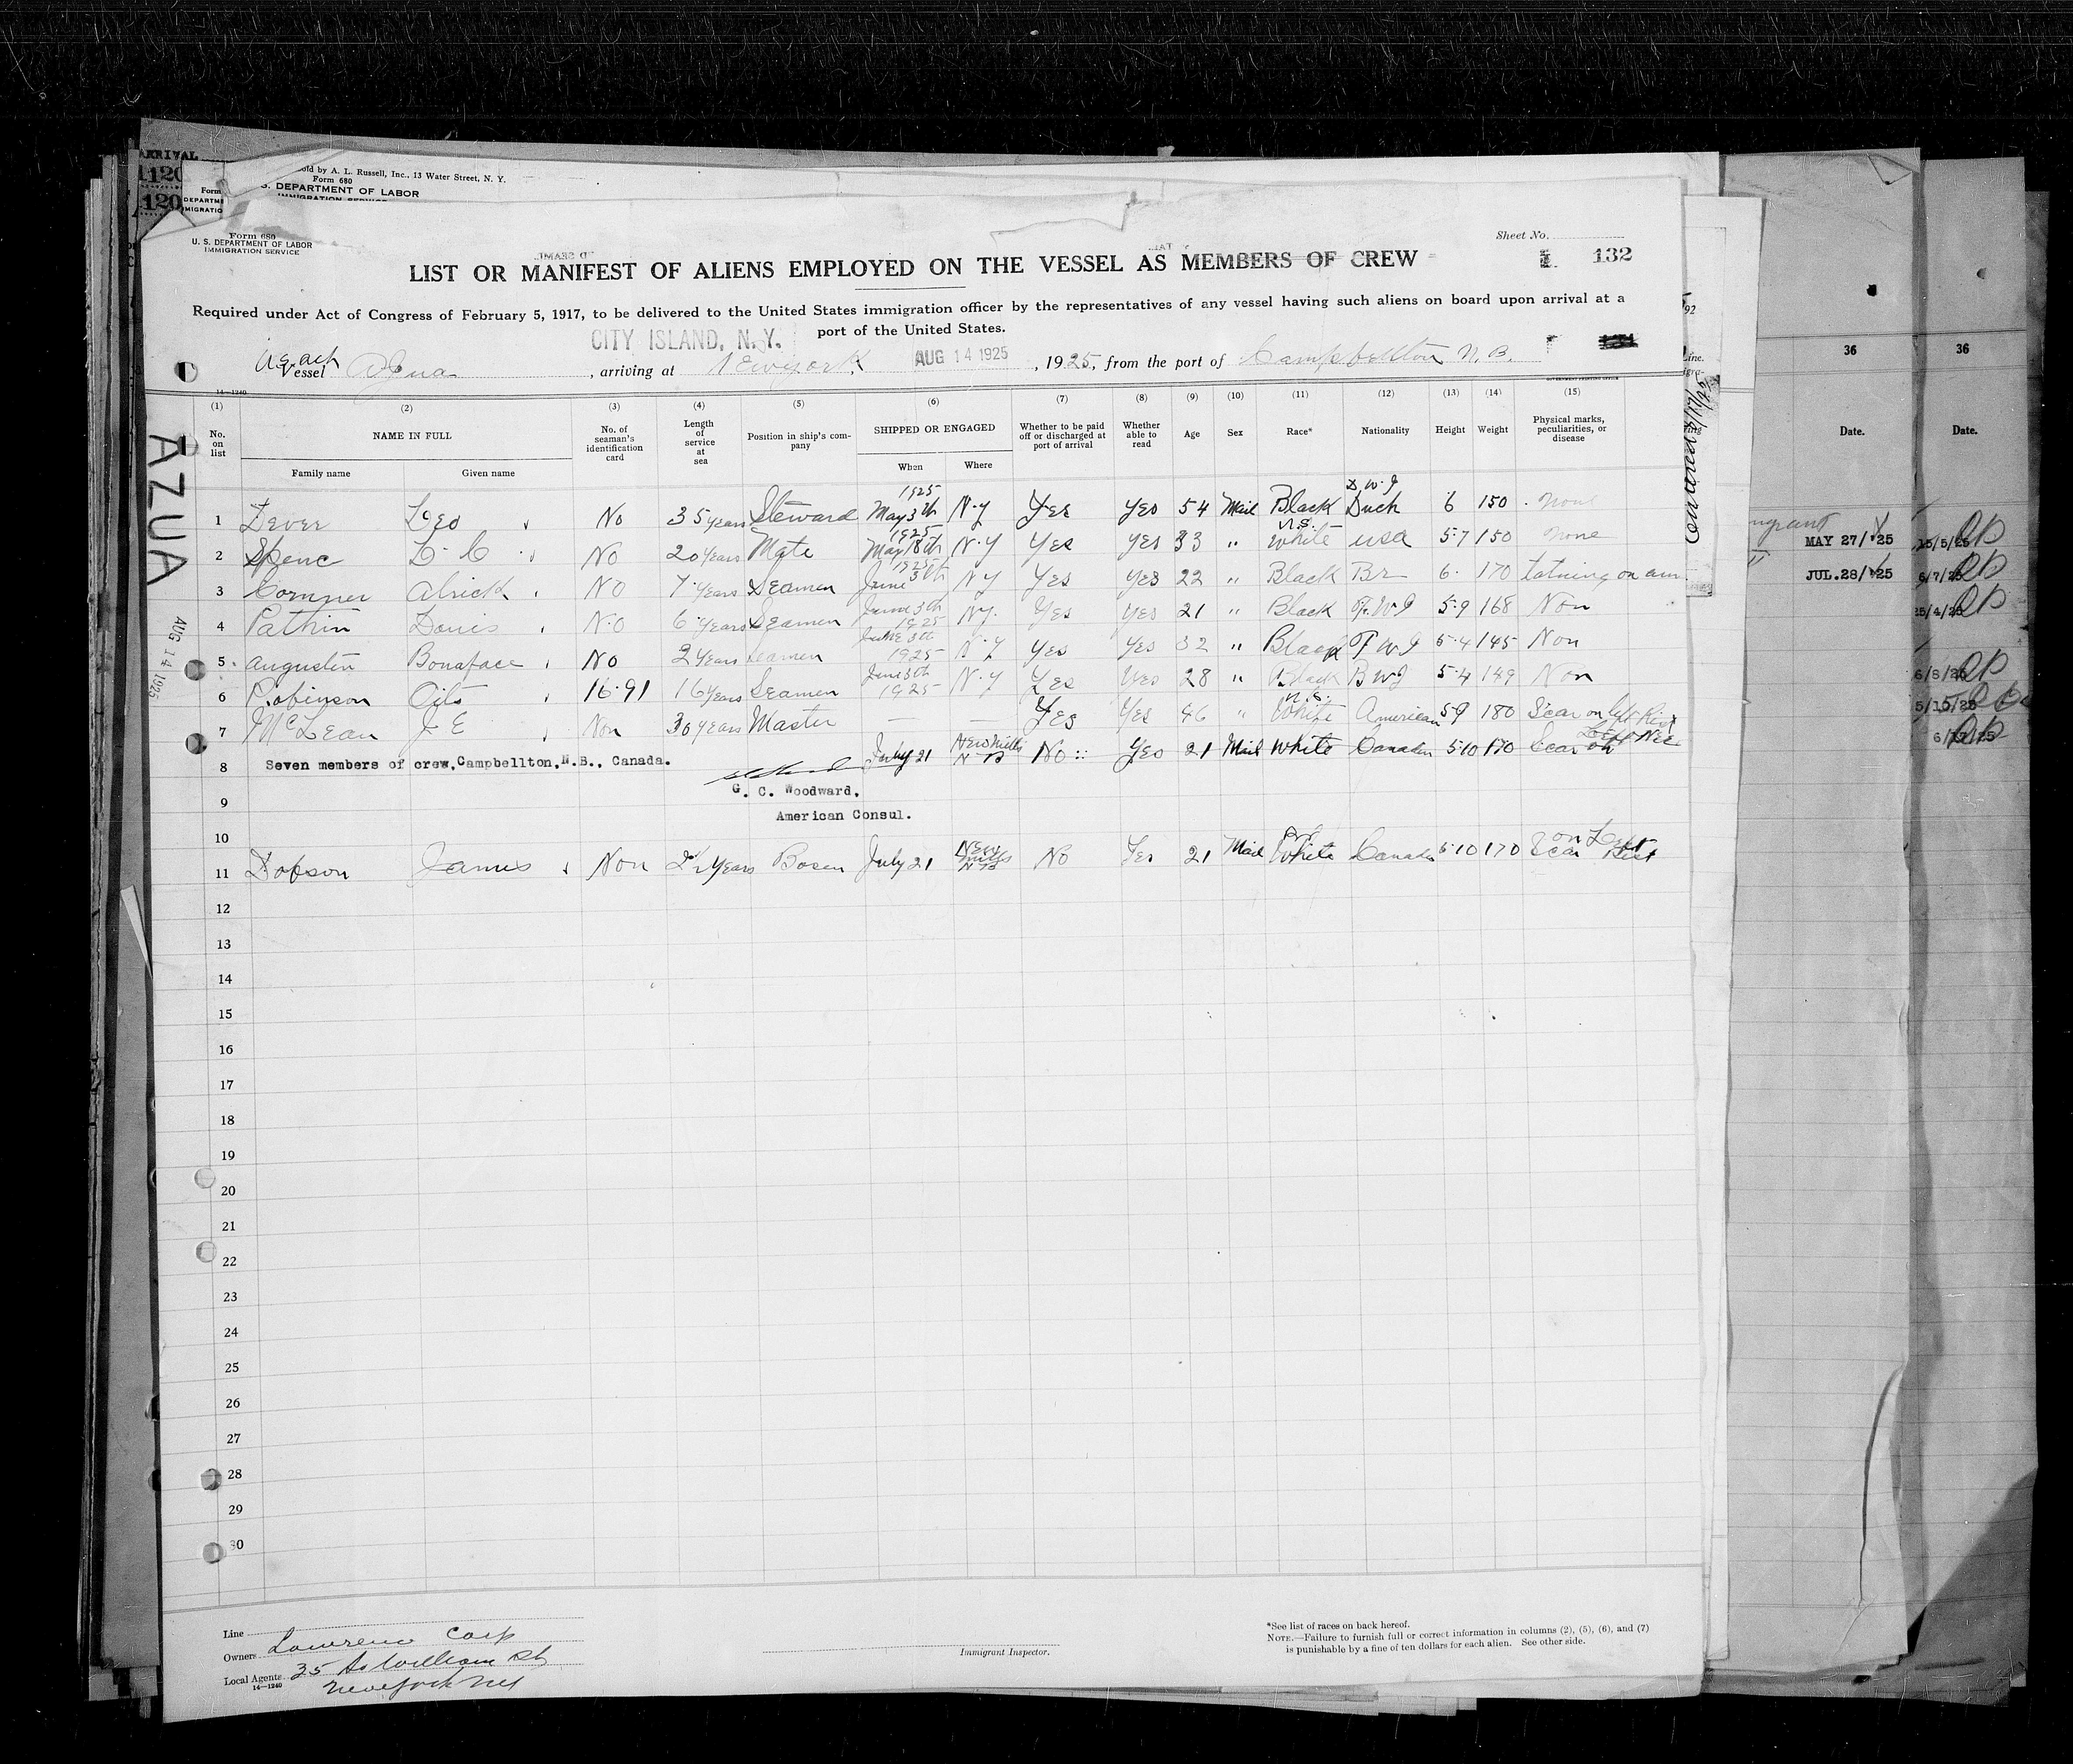 ARRIVAL
1120
1120
Sold by A. L. Russell, Inc., 13 Water Street, N. Y.
Form 680
S. DEPARTMENT OF LABOR
Form 680
U. S. DEPARTMENT OF LABOR
IMMIGRATION SERVICE
Sheet No.
132
LIST OR MANIFEST OF ALIENS EMPLOYED ON THE VESSEL AS MEMBERS OF CREW
Required under Act of Congress of February 5, 1917, to be delivered to the United States immigration officer by the representatives of any vessel having such aliens on board upon arrival at a
port of the United States.
CITY ISLAND, N. Y.
Vessel Azua, arriving at New york AUG 14 1925, 1925, from the port of Campbellton N. B.
14—1240
(1) (2) (3) (4) (5) (6) (7) (8) (9) (10) (11) (12) (13) (14) (15)
No. on list NAME IN FULL No. of seaman's identification card Length of service at sea Position in ship's company SHIPPED OR ENGAGED Whether to be paid off or discharged at port of arrival Whether able to read Age Sex Race* Nationality Height Weight Physical marks, peculiarities, or disease
Family name Given name When Where
AZUA
AUG 14 1925
1 Dever Leo No 35 years Steward May 3th 1925 N.Y Yes Yes 54 Mail Black D.W.I Duch 6 150 None
2 Spenc D. C No 20 years Mate May 18th 1925 N.Y Yes Yes 33 " White USA 5.7 150 None
3 Cornner Alrick NO 7 years Seamen June 3th 1925 NY Yes Yes 22 " Black Br 6. 170 tatning on arm
4 Pathin Louis NO 6 years Seamen June 3th 1925 NY. Yes Yes 21 " Black F.W.I 5.9 168 Non
5 Augustin Bonaface No 2 years Seamen June 3th 1925 N.Y Yes Yes 32 " Black F W I 5.4 145 Non
6 Robinson Oits 16.91 16 years Seamen June 3th 1925 N.Y Yes Yes 28 " Black B W I 5.4 149 Non
7 McLean J E Non 30 years Master — — Yes Yes 46 " White American 5.9 180 Scar on left Rist
8 Seven members of crew, Campbellton, N.B., Canada. July 21 New Mills N B No Yes 21 Mail White Canaden 5.10 170 Scar on
G. C. Woodward.
9
American Consul.
10
11 Dobson James Non 2½ years Bosen July 21 New Mills N B No Yes 21 Mail White Canaden 5.10 170 Scar on Left Rist
12
13
14
15
16
17
18
19
20
21
22
23
24
25
26
27
28
29
30
Line
Owners Lawrence Corp
Local Agents 35 So William St
14—1240
New york NY
Immigrant Inspector.
*See list of races on back hereof.
NOTE.—Failure to furnish full or correct information in columns (2), (5), (6), and (7)
is punishable by a fine of ten dollars for each alien. See other side.
36
36
Date.
Date.
MAY 27/25
JUL. 28/25